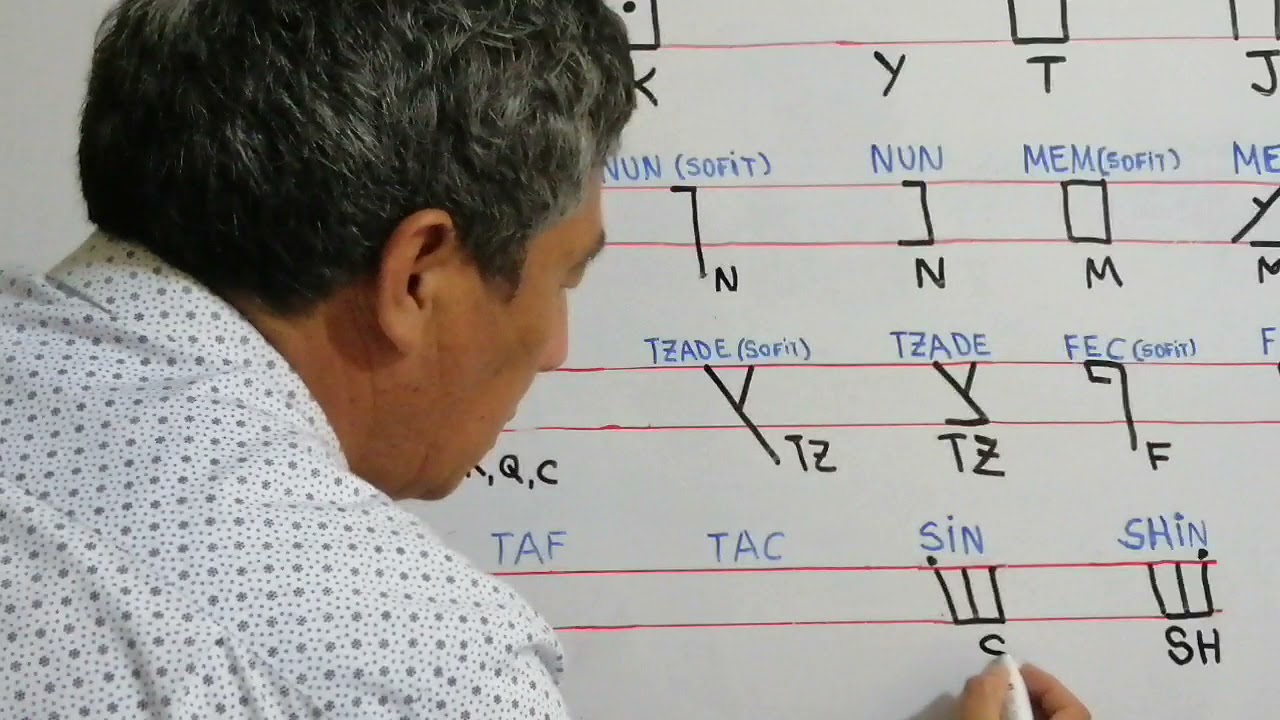 K Y T J
NUN (SOFiT) NUN MEM(SOFiT) ME
ן נ ם מ
N N M M
TZADE (SOFiT) TZADE FEC (SOFiT) F
ץ צ ף
K, Q, C TZ TZ F
TAF TAC SiN SHiN
שׂ שׁ
S SH